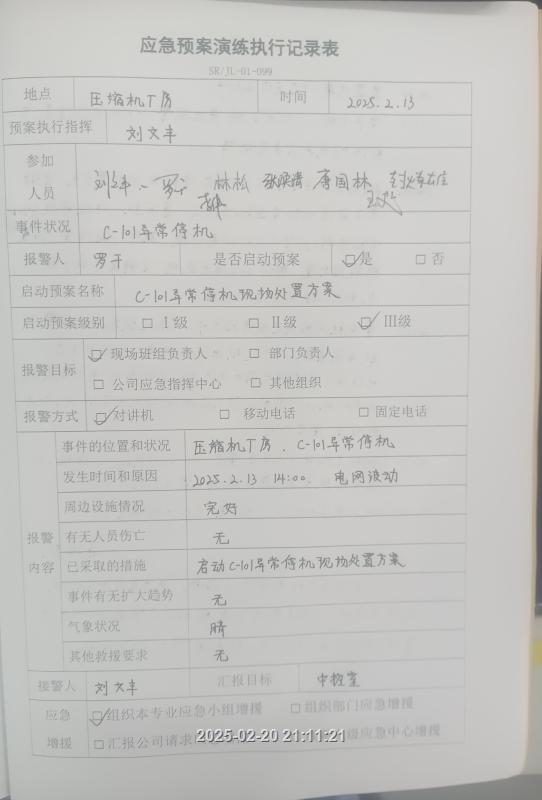 应急预案演练执行记录表
SR/JL-01-099
地点 压缩机厂房 时间 2025.2.13
预案执行指挥 刘文丰
参加人员 林松 唐国林
事件状况 C-101异常停机
报警人 罗干 是否启动预案 ☑是 □否
启动预案名称 C-101异常停机现场处置方案
启动预案级别 □ Ⅰ级 □ Ⅱ级 ☑ Ⅲ级
报警目标 ☑ 现场班组负责人 □ 部门负责人
□ 公司应急指挥中心 □ 其他组织
报警方式 ☑ 对讲机 □ 移动电话 □ 固定电话
报警内容
事件的位置和状况 压缩机厂房、C-101异常停机
发生时间和原因 2025.2.13 14:00 电网波动
周边设施情况 完好
有无人员伤亡 无
已采取的措施 启动C-101异常停机现场处置方案
事件有无扩大趋势 无
气象状况 晴
其他救援要求 无
接警人 刘文丰 汇报目标 中控室
应急增援 ☑组织本专业应急小组增援 □组织部门应急增援
□汇报公司请求 级应急中心增援
2025-02-20 21:11:21